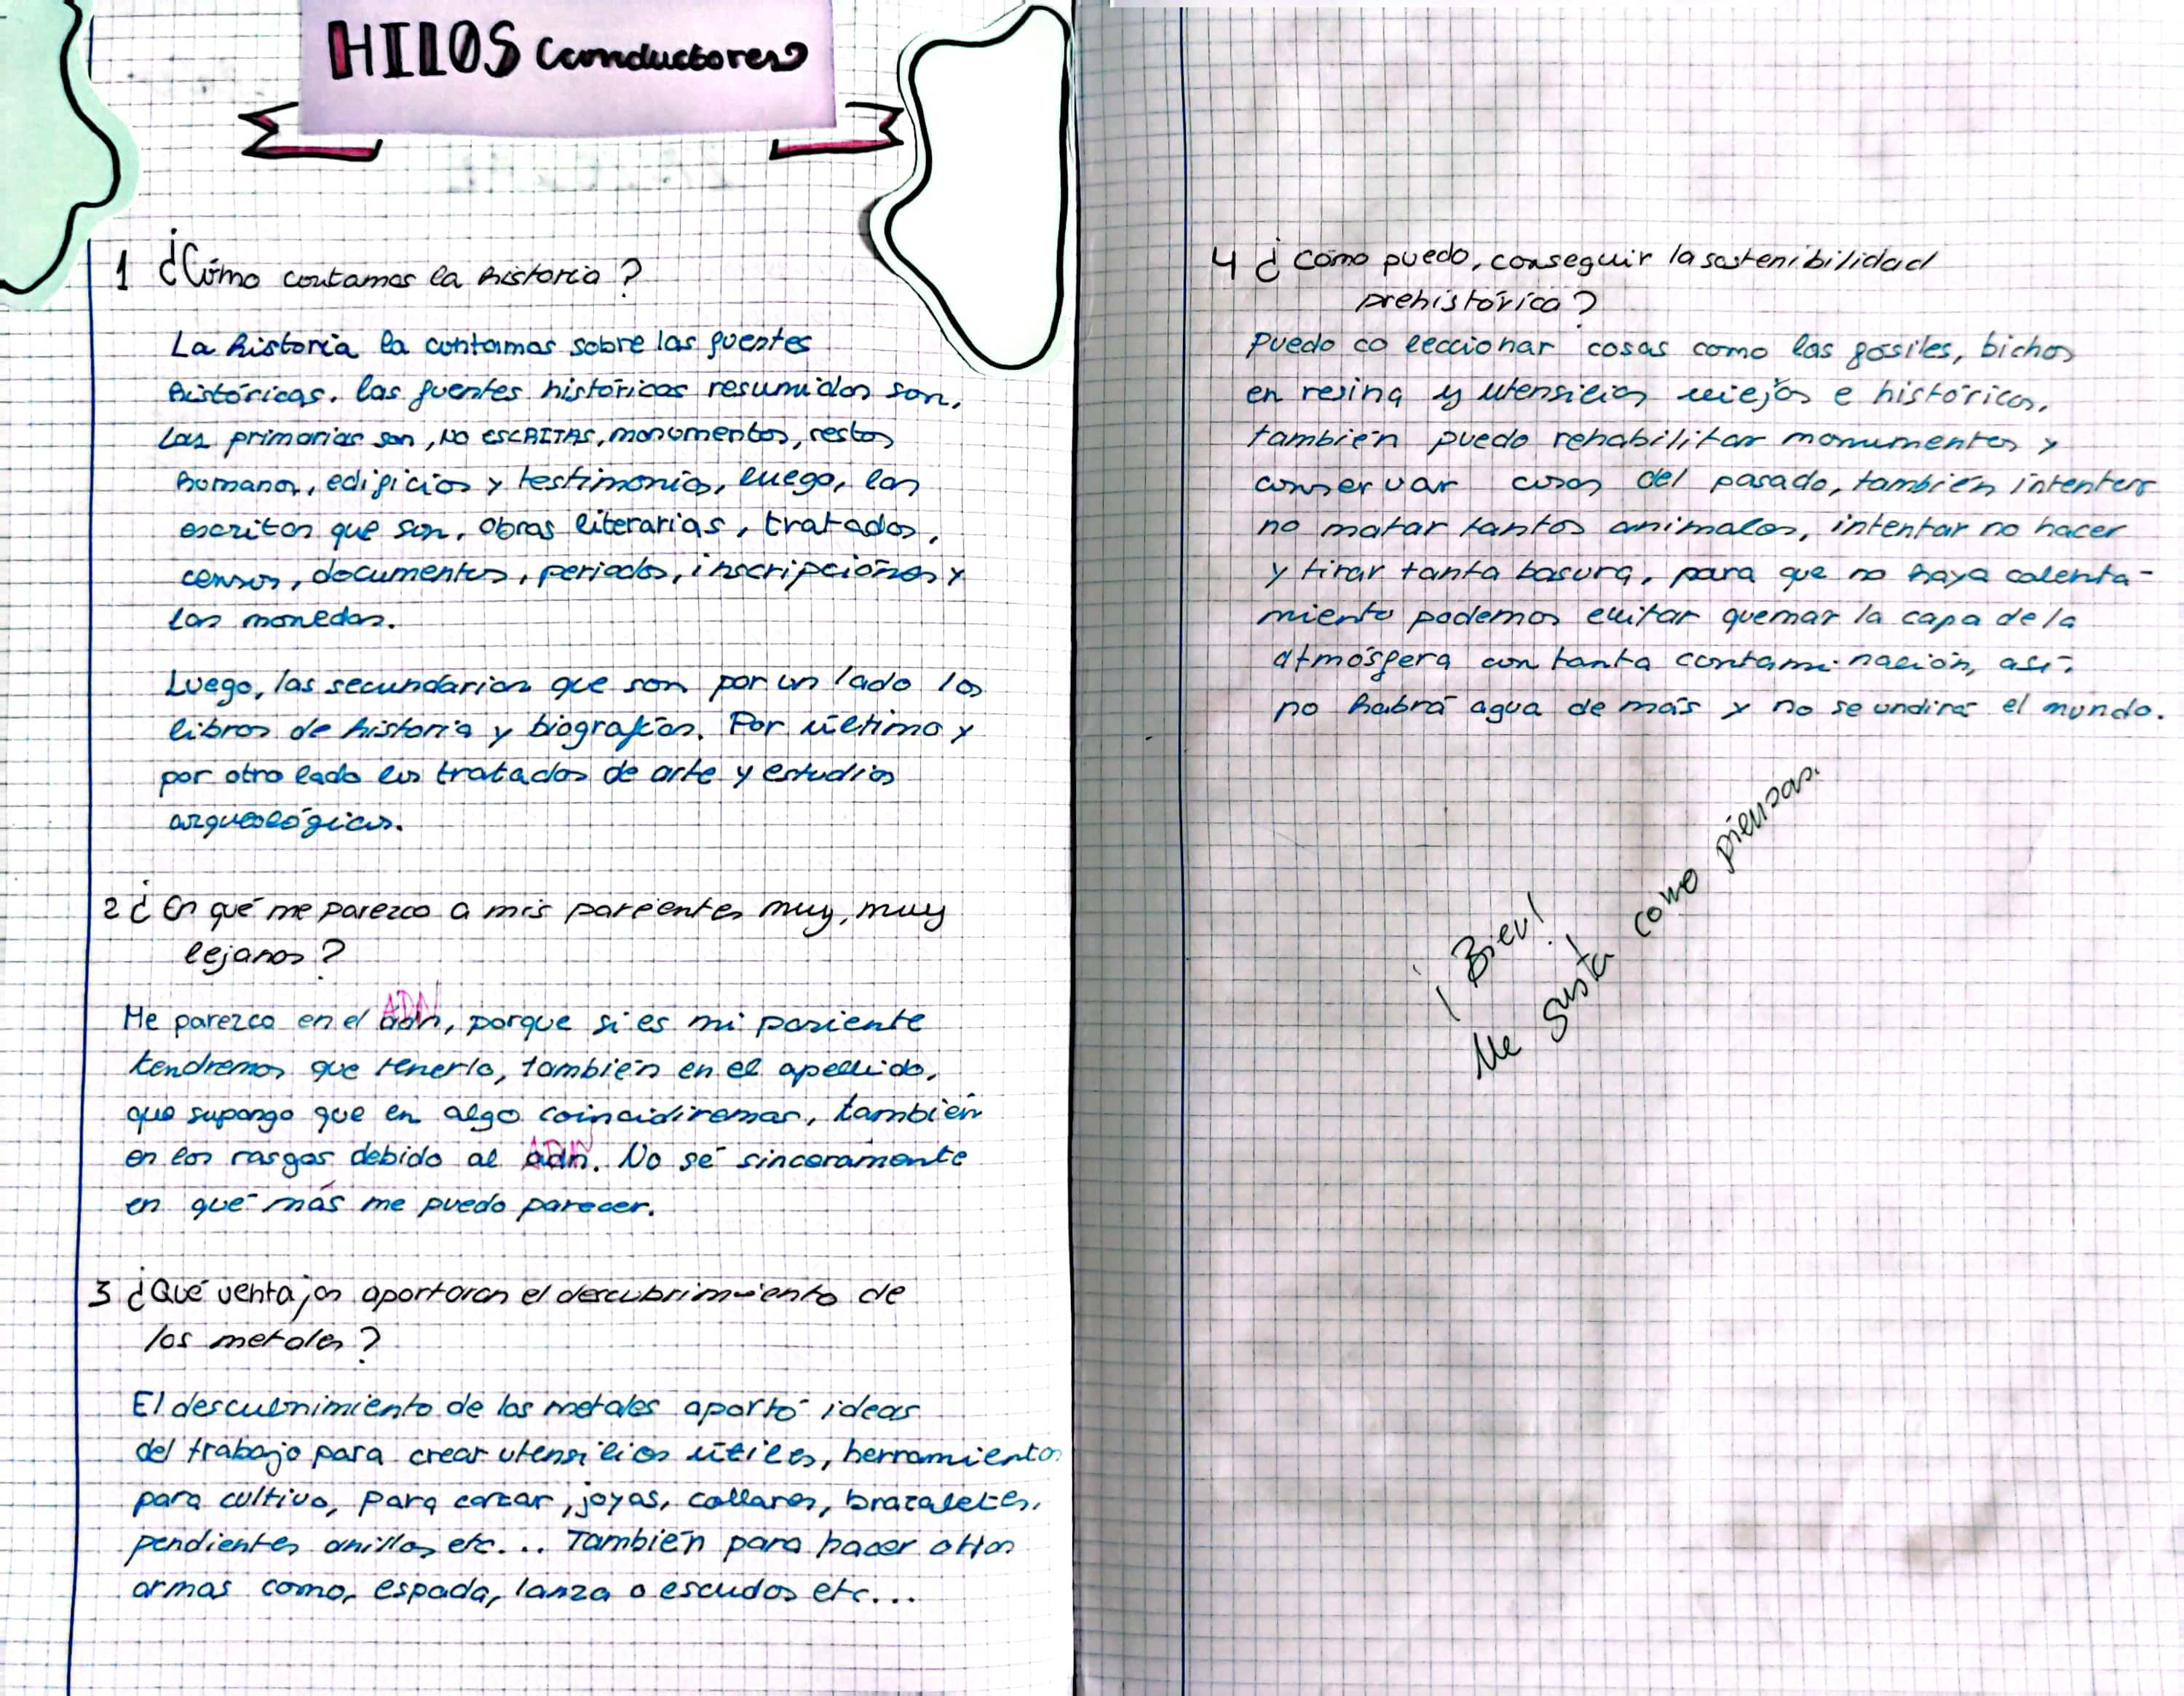 HILOS conductores
1 ¿Cómo contamos la historia?
La historia la contamos sobre las fuentes
históricas. las fuentes históricas resumidas son,
Las primarias son, NO ESCRITAS, monumentos, restos
humanos, edificios y testimonios, luego, las
escritas que son, obras literarias, tratados,
censos, documentos, periodos, inscripciones y
las monedas.
Luego, las secundarias que son por un lado los
libros de historia y biografías. Por último y
por otro lado los tratados de arte y estudios
arqueológicos.
2 ¿En qué me parezco a mis parientes muy, muy
lejanos?
Me parezco en el ADN, porque si es mi pariente
tendremos que tenerlo, también en el apellido,
que supongo que en algo coincidiremos, también
en los rasgos debido al ADN. No sé sinceramente
en qué más me puedo parecer.
3 ¿Qué ventajas aportaron el descubrimiento de
los metales?
El descubrimiento de los metales aportó ideas
del trabajo para crear utensilios útiles, herramientas
para cultivo, para cazar, joyas, collares, brazaletes,
pendientes anillos etc... También para hacer otras
armas como, espada, lanza o escudos etc...
4 ¿Cómo puedo, conseguir la sostenibilidad
prehistórica?
Puedo coleccionar cosas como las fósiles, bichos
en resina y utensilios viejos e históricos,
también puedo rehabilitar monumentos y
conservar cosas del pasado, también intentar
no matar tantos animales, intentar no hacer
y tirar tanta basura, para que no haya calenta-
miento podemos evitar quemar la capa de la
atmósfera con tanta contaminación, así,
no habrá agua de más y no se undirá el mundo.
¡Bien!
Me gusta como piensas.